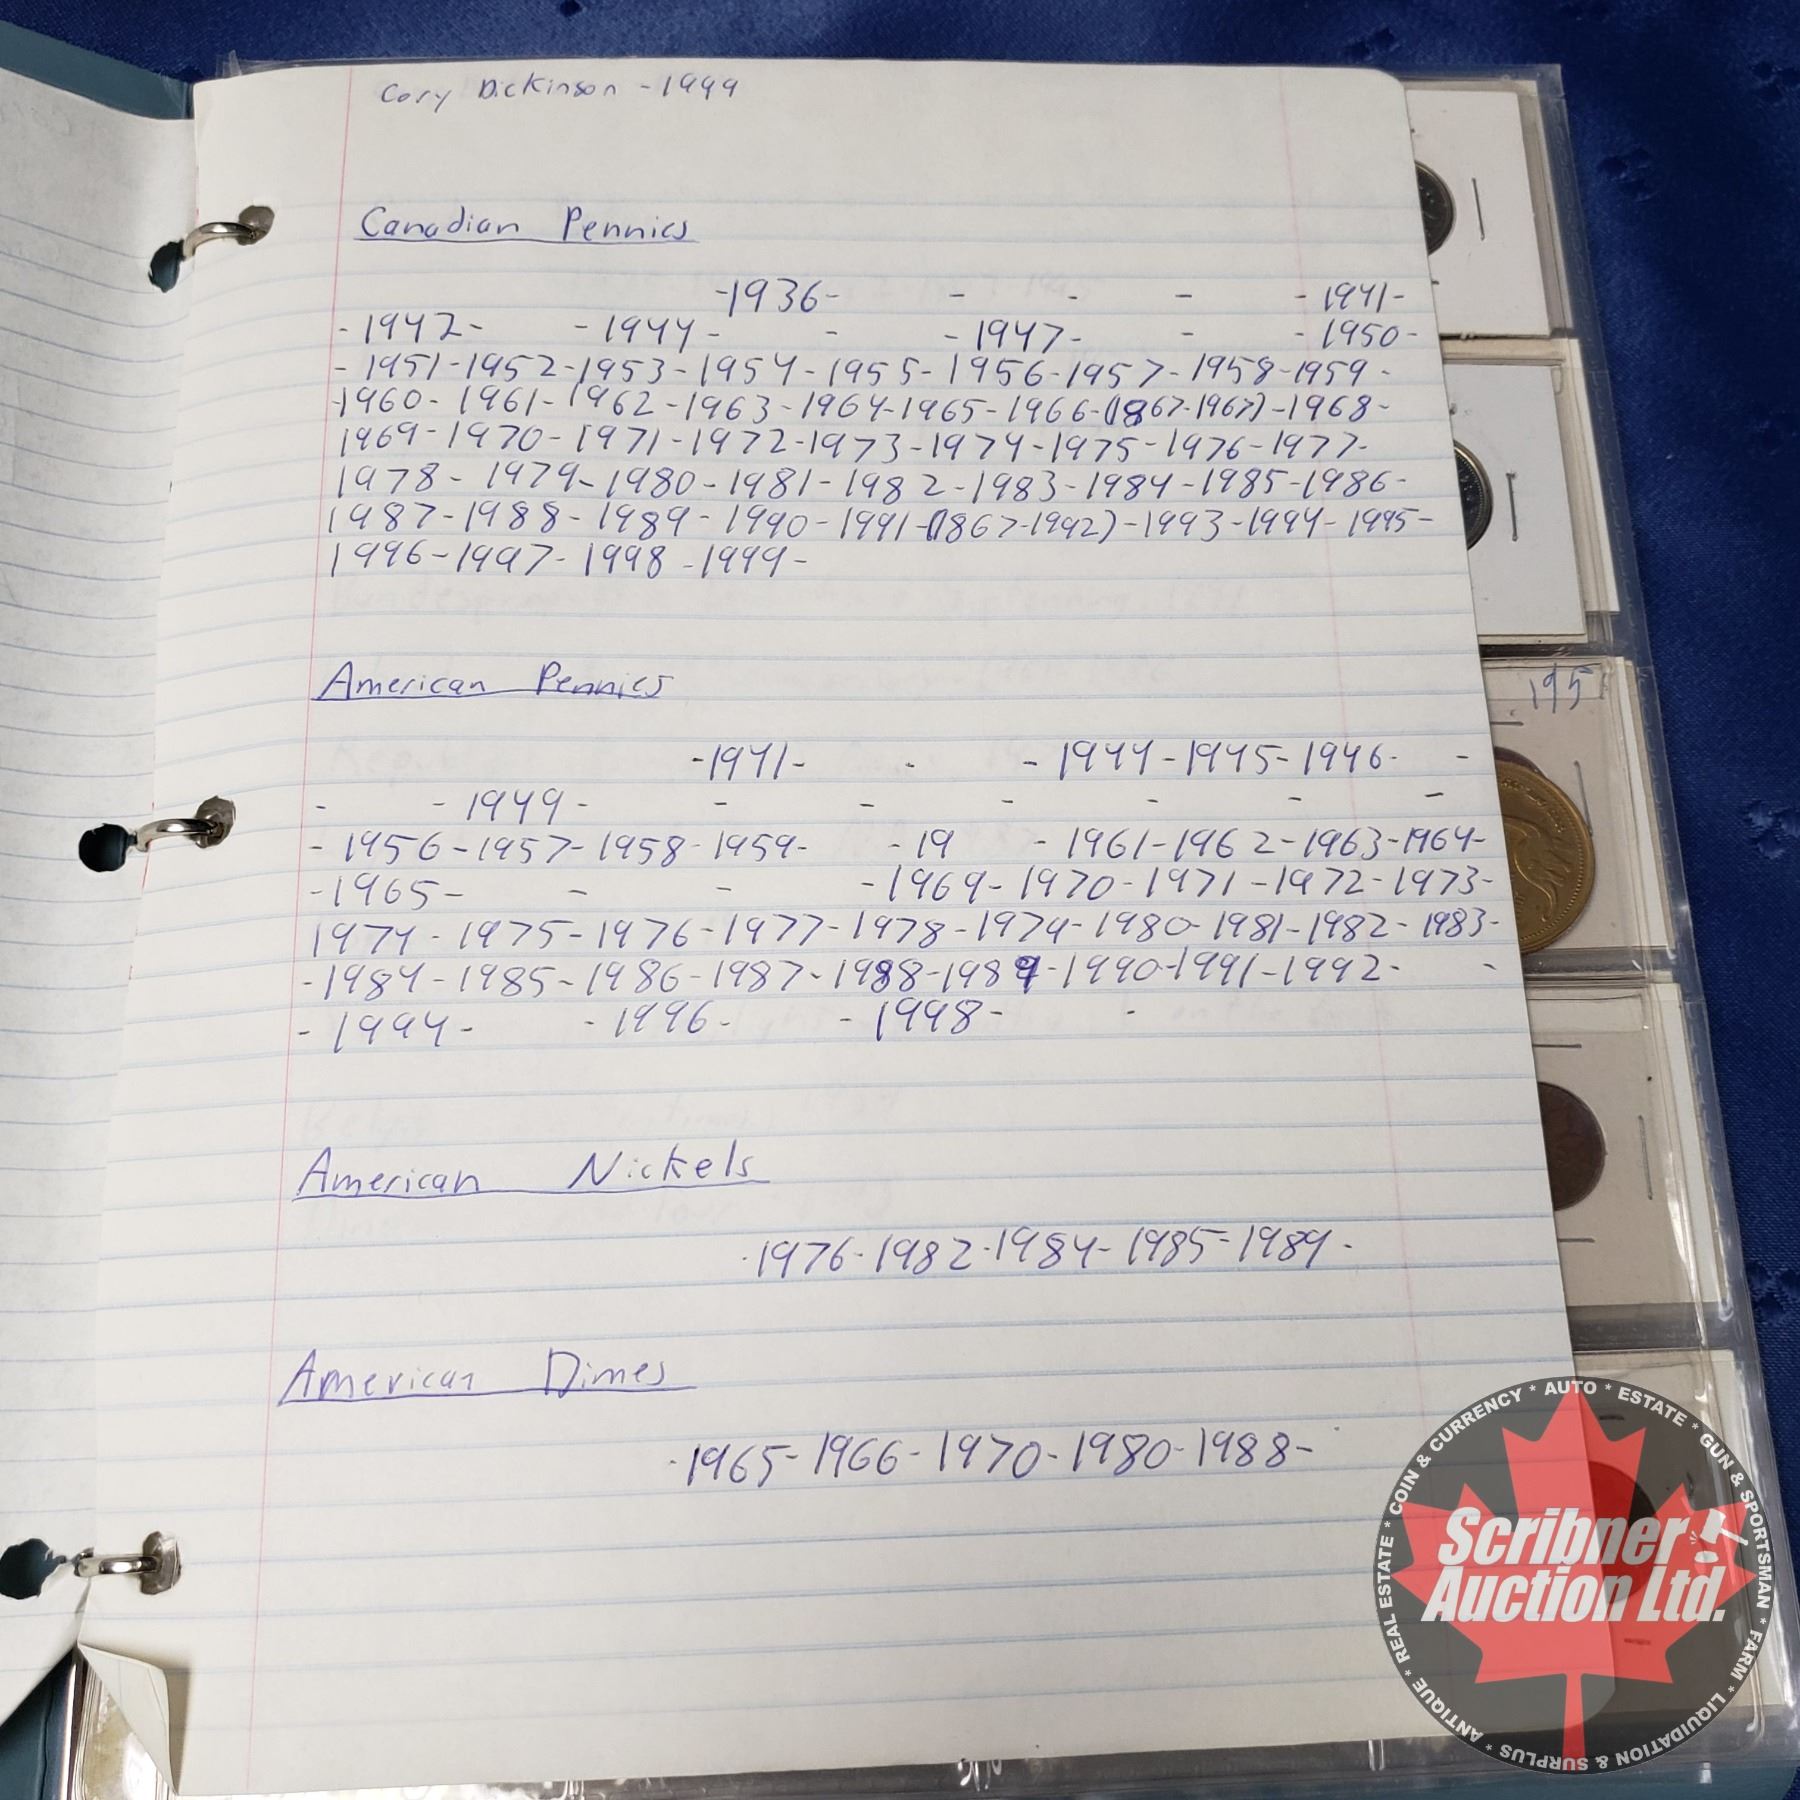 Cory Dickinson - 1999
Canadian Pennies
-1936- - - - - 1941-
- 1942- - 1944 - - - 1947- - - 1950-
- 1951 - 1952 - 1953 - 1954 - 1955 - 1956 - 1957 - 1958 - 1959 -
-1960 - 1961 - 1962 - 1963 - 1964 - 1965 - 1966 - (1867-1967) - 1968 -
1969 - 1970 - 1971 - 1972 - 1973 - 1974 - 1975 - 1976 - 1977 -
1978 - 1979 - 1980 - 1981 - 1982 - 1983 - 1984 - 1985 - 1986 -
1987 - 1988 - 1989 - 1990 - 1991 - (1867-1992) - 1993 - 1994 - 1995 -
1996 - 1997 - 1998 - 1999 -
American Pennies
-1941- - - 1944 - 1945 - 1946 - -
- - 1949 - - - - - - -
- 1956 - 1957 - 1958 - 1959 - - 19 - 1961 - 1962 - 1963 - 1964 -
- 1965 - - - - 1969 - 1970 - 1971 - 1972 - 1973 -
1974 - 1975 - 1976 - 1977 - 1978 - 1979 - 1980 - 1981 - 1982 - 1983 -
- 1984 - 1985 - 1986 - 1987 - 1988 - 1989 - 1990 - 1991 - 1992 - -
- 1994 - - 1996 - - 1998 - -
American Nickels
-1976 - 1982 - 1984 - 1985 - 1989 -
American Dimes
-1965 - 1966 - 1970 - 1980 - 1988 -
Scribner
Auction Ltd.
ANTIQUE * REAL ESTATE * COIN & CURRENCY * AUTO * ESTATE * GUN & SPORTSMAN * FARM * LIQUIDATION & SURPLUS *